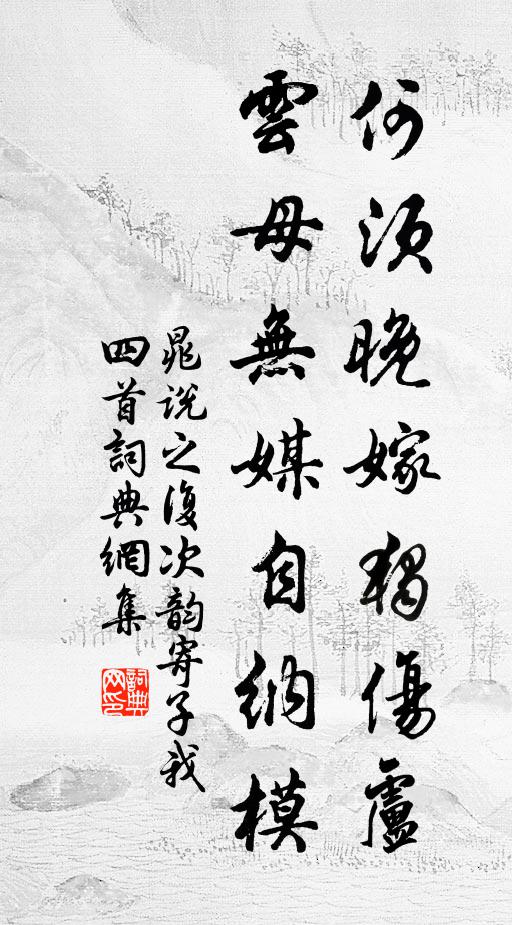 何須晚嫁獨傷廬
雲母無媒自納模
晁說之復次韵寄子我
四首詞典網集
詞典网印